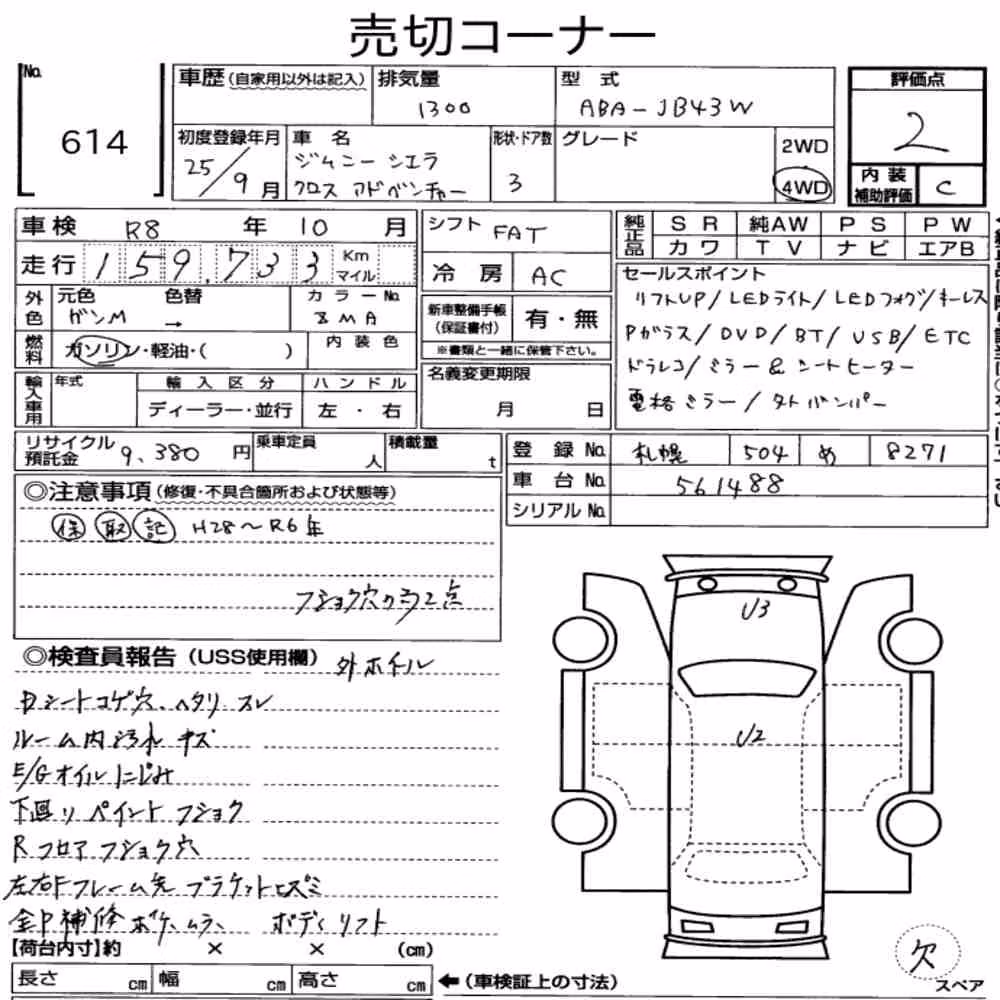 売切コーナー
No.
614
車歴(自家用以外は記入)
排気量
1300
型 式
ABA-JB43W
評価点
2
内装補助評価
C
初度登録年月
25/9月
車 名
ジムニーシエラ
クロスアドベンチャー
形状・ドア数
3
グレード
2WD
4WD
車検 R8 年 10 月
シフト FAT
純正品
SR 純AW PS PW
カワ TV ナビ エアB
走行 159,733 Km マイル
冷房 AC
セールスポイント
リフトUP/LEDライト/LEDフォグ/キーレス
Pガラス/DVD/BT/USB/ETC
ドラレコ/ミラー&シートヒーター
電格ミラー/タトバンパー
外色 元色 色替 カラーNo.
ガンM → ZMA
新車整備手帳(保証書付) 有・無
※書類と一緒に保管下さい。
燃料 ガソリン・軽油・( ) 内装色
名義変更期限
月 日
輸入車用 年式 輸入区分 ハンドル
ディーラー・並行 左・右
リサイクル預託金 9,380円
乗車定員 人
積載量 t
登録No. 札幌 504 め 8271
車台No. 561488
シリアルNo.
◎注意事項(修復・不具合箇所および状態等)
保 取 記 H28〜R6年
フショク穴の為2点
◎検査員報告(USS使用欄) 外ホイル
内シートコゲ穴、ヘタリ スレ
ルーム内汚れ キズ
E/Gオイルにじみ
下回り ペイント フショク
Rフロアフショク穴
左右Fフレーム先 ブラケットヒズミ
全P補修ボケ、ムラ、 ボディリフト
【荷台内寸】約 × × (cm)
長さ cm 幅 cm 高さ cm
←(車検証上の寸法)
U3
U2
欠
スペア